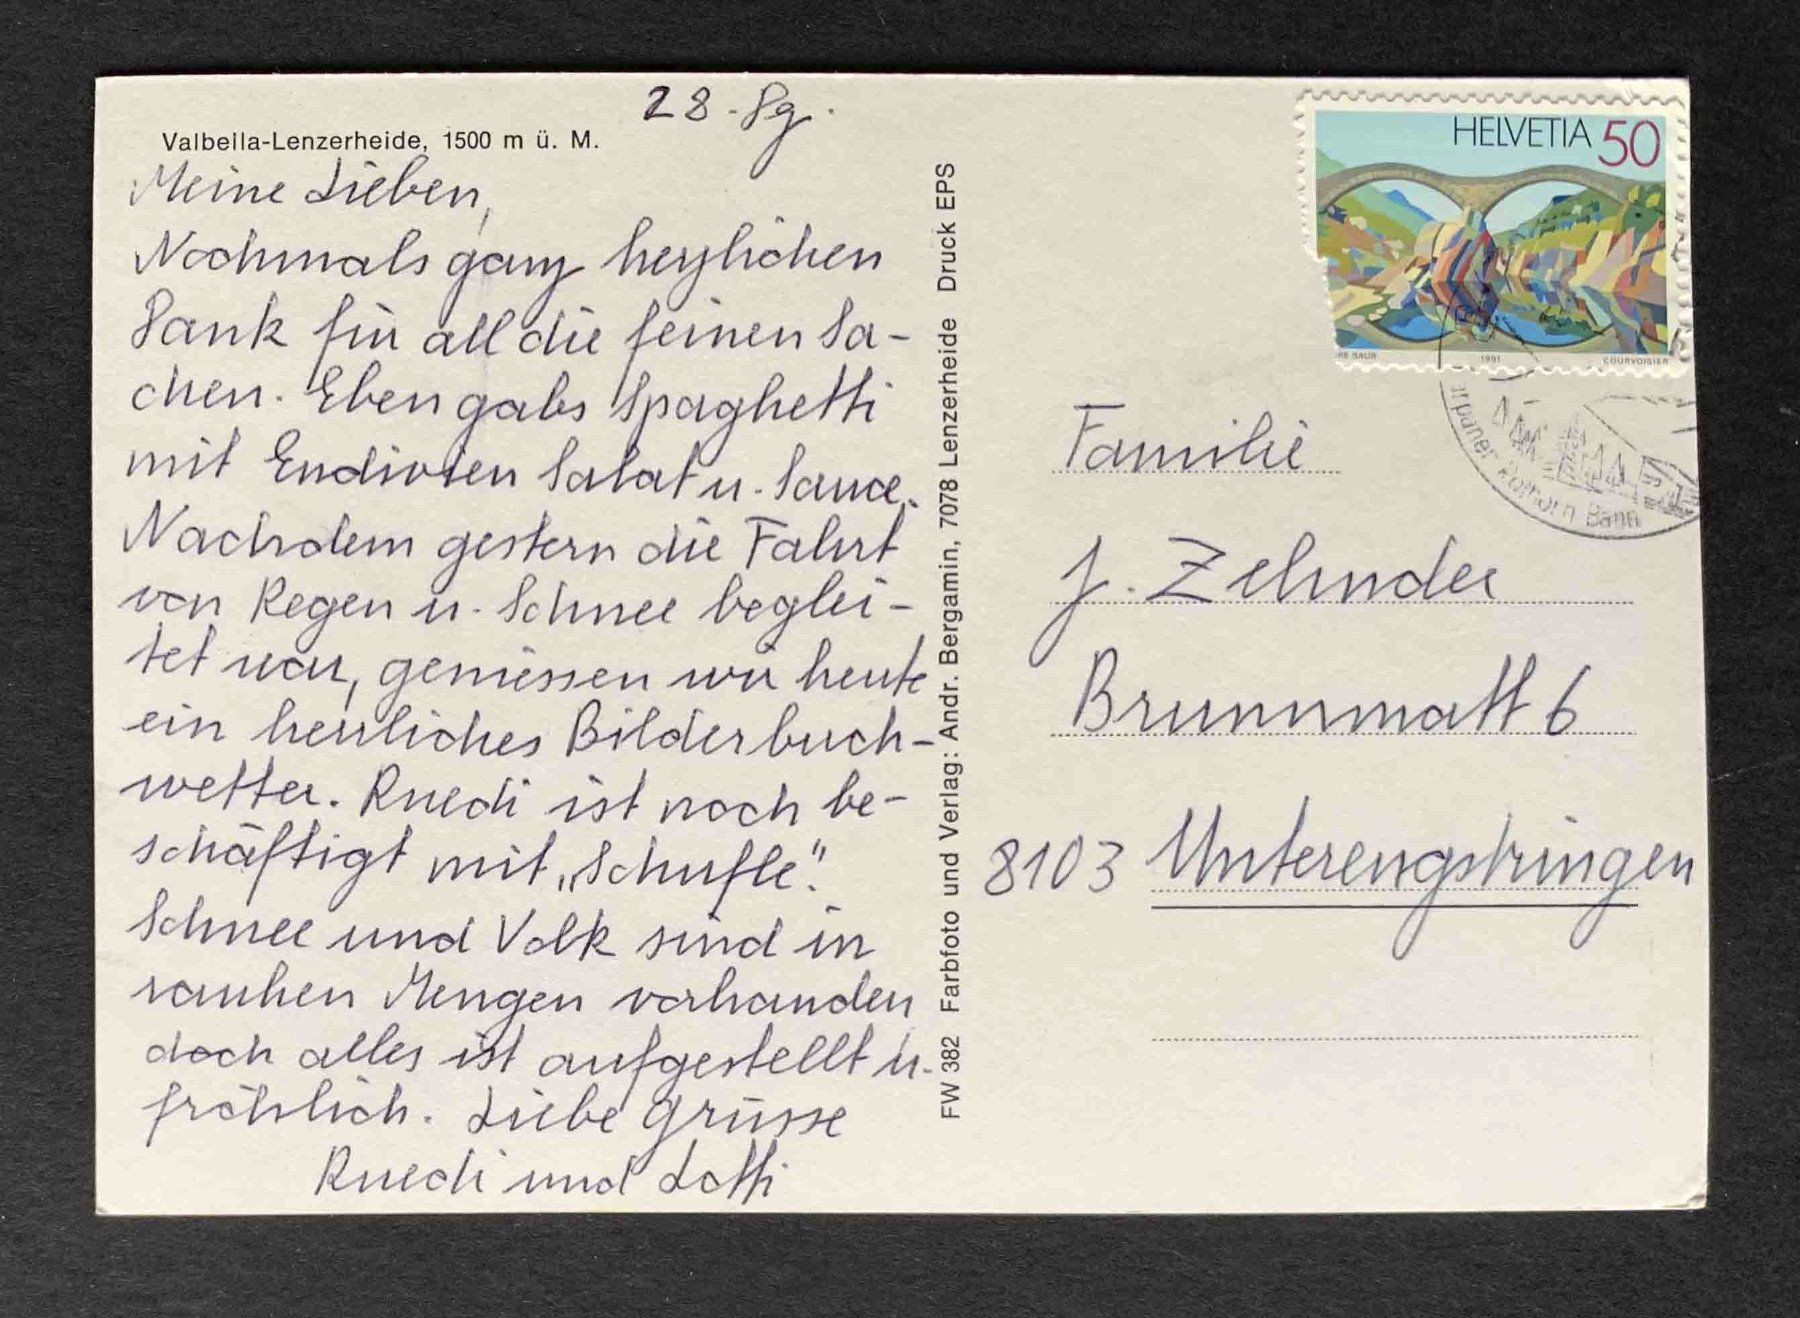 28.
Valbella-Lenzerheide, 1500 m ü. M.
Meine Lieben,
Nochmals ganz herzlichen
Dank für all die feinen Sa-
chen. Eben gabs Spaghetti
mit Endivien Salat u. Sauce.
Nachdem gestern die Fahrt
von Regen u. Schnee beglei-
tet war, geniessen wir heute
ein herrliches Bilderbuch-
wetter. Ruedi ist noch be-
schäftigt mit „Schufle".
Schnee und Volk sind in
rauhen Mengen vorhanden
doch alles ist aufgestellt u.
fröhlich. Liebe Grüsse
Ruedi und Lotti
FW 382 Farbfoto und Verlag: Andr. Bergamin, 7078 Lenzerheide Druck EPS
HELVETIA 50
1991 COURVOISIER
Rothorn Bahn
Familie
J. Zehnder
Brunnmatt 6
8103 Unterengstringen